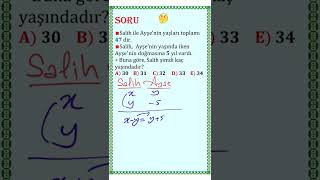 30 B) 31 C) 32 D) 33 E)
yaşındadır?
SORU
Salih ile Ayşe'nin yaşları toplamı
47 dir.
Salih, Ayşe'nin yaşında iken
Ayşe'nin doğmasına 5 yıl vardı.
Buna göre, Salih şimdi kaç
yaşındadır?
A) 30 B) 31 C) 32 D) 33 E) 34
Salih Ayşe
x y
y -5
x-y=y+5